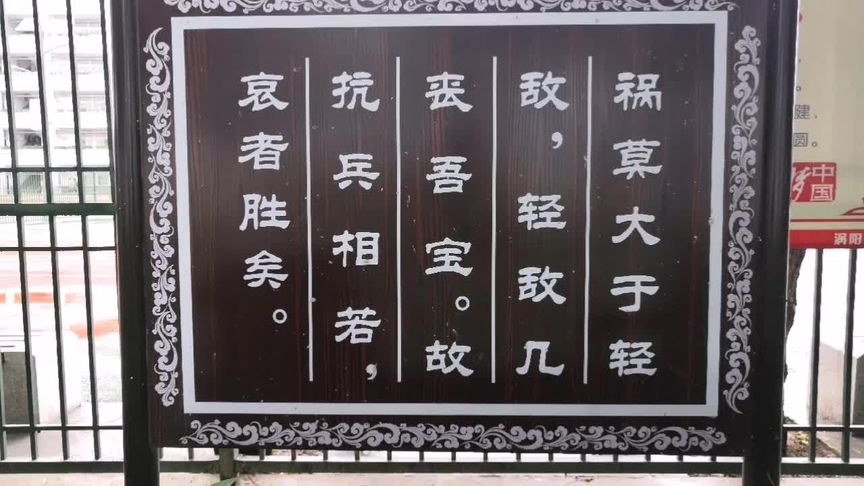 祸莫大于轻
敌，轻敌几
丧吾宝。故
抗兵相若，
哀者胜矣。
健、
圆。
中国
梦
涡阳